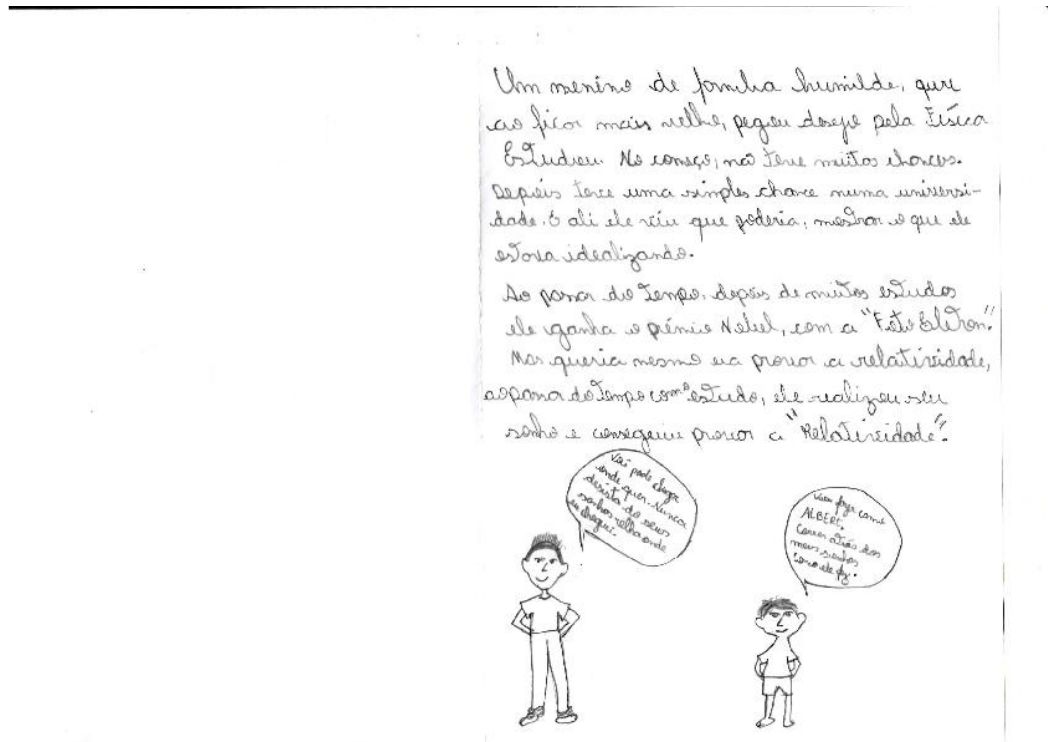 Um menino de familia humilde, que
ao ficar mais velho, pegou desejo pela Física
Estudiou. No começo, não teve muitas chances.
Depois teve uma simples chance numa universi-
dade. E ali ele viu que poderia, mostrar o que ele
estava idealizando.
Ao passar do tempo, depois de muitos estudos
ele ganha o prémio Nobel, com a "Foto Elétron".
Mas queria mesmo era provar a relatividade,
ao passar do tempo com o estudo, ele realizou seu
sonho e conseguiu provar a "Relatividade".
Você pode chegar
onde quer. Nunca
desista do seus
sonhos olha onde
eu cheguei.
Vou fazer como
ALBERT.
Correr atrás dos
meus sonhos
como ele fez.